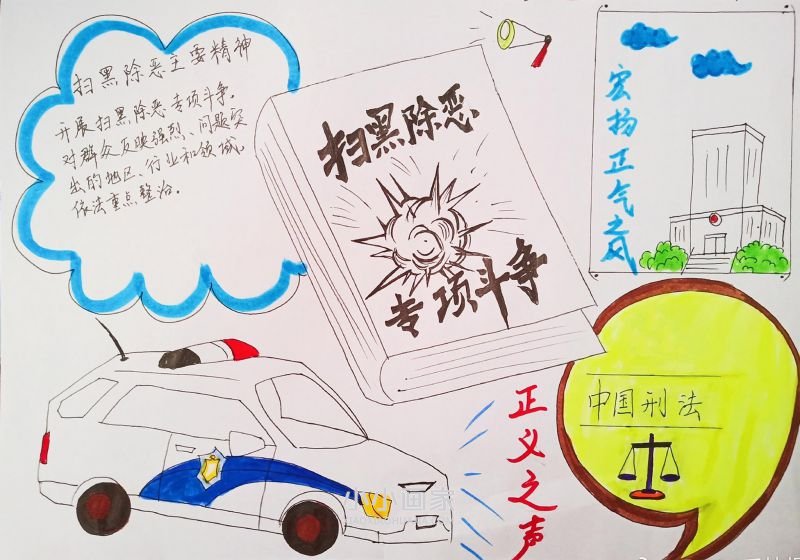 扫黑除恶主要精神
开展扫黑除恶专项斗争.
对群众反映强烈、问题突
出的地区、行业和领域,
依法重点整治。
扫黑除恶
专项斗争
宏扬正气之风
中国刑法
正义之声
小小画家